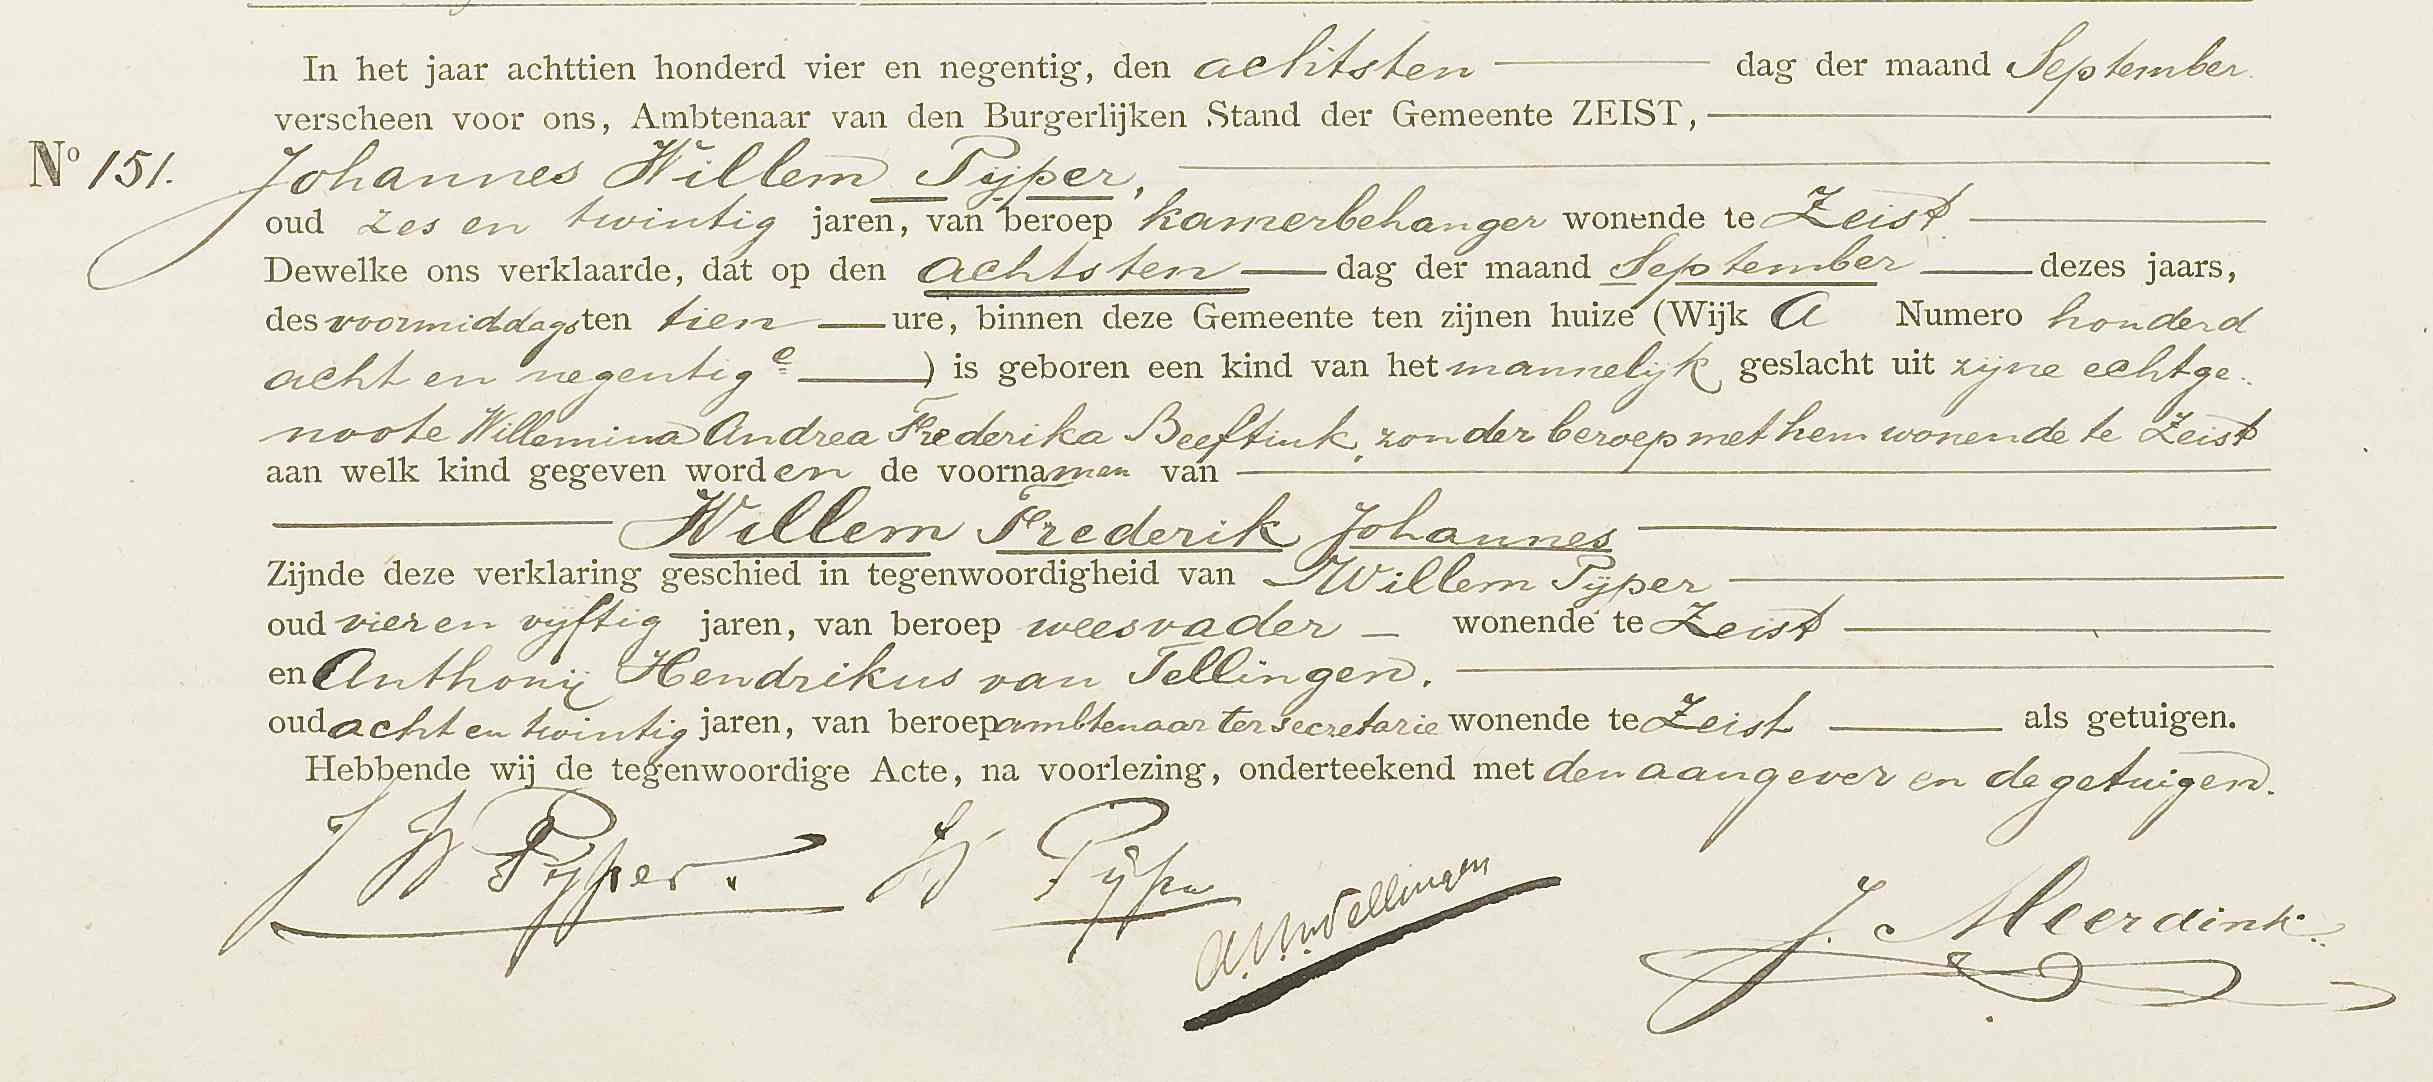 In het jaar achttien honderd vier en negentig, den achtsten dag der maand September
verscheen voor ons, Ambtenaar van den Burgerlijken Stand der Gemeente ZEIST,
No 151. Johannes Willem Pijper,
oud zes en twintig jaren, van beroep kamerbehanger wonende te Zeist
Dewelke ons verklaarde, dat op den achtsten dag der maand September dezes jaars,
des voormiddags ten tien ure, binnen deze Gemeente ten zijnen huize (Wijk A Numero honderd
acht en negentig e ) is geboren een kind van het mannelijk geslacht uit zijne echtge
noote Willemina Andrea Frederika Beeftink, zonder beroep met hem wonende te Zeist
aan welk kind gegeven worden de voornamen van
Willem Frederik Johannes
Zijnde deze verklaring geschied in tegenwoordigheid van Willem Pijper
oud vier en vijftig jaren, van beroep weesvader wonende te Zeist
en Anthonij Hendrikus van Tellingen.
oud acht en twintig jaren, van beroep ambtenaar ter secretarie wonende te Zeist als getuigen.
Hebbende wij de tegenwoordige Acte, na voorlezing, onderteekend met den aangever en de getuigen.
J W Pijper. W Pijper
A.H.v.Tellingen J. Meerdink